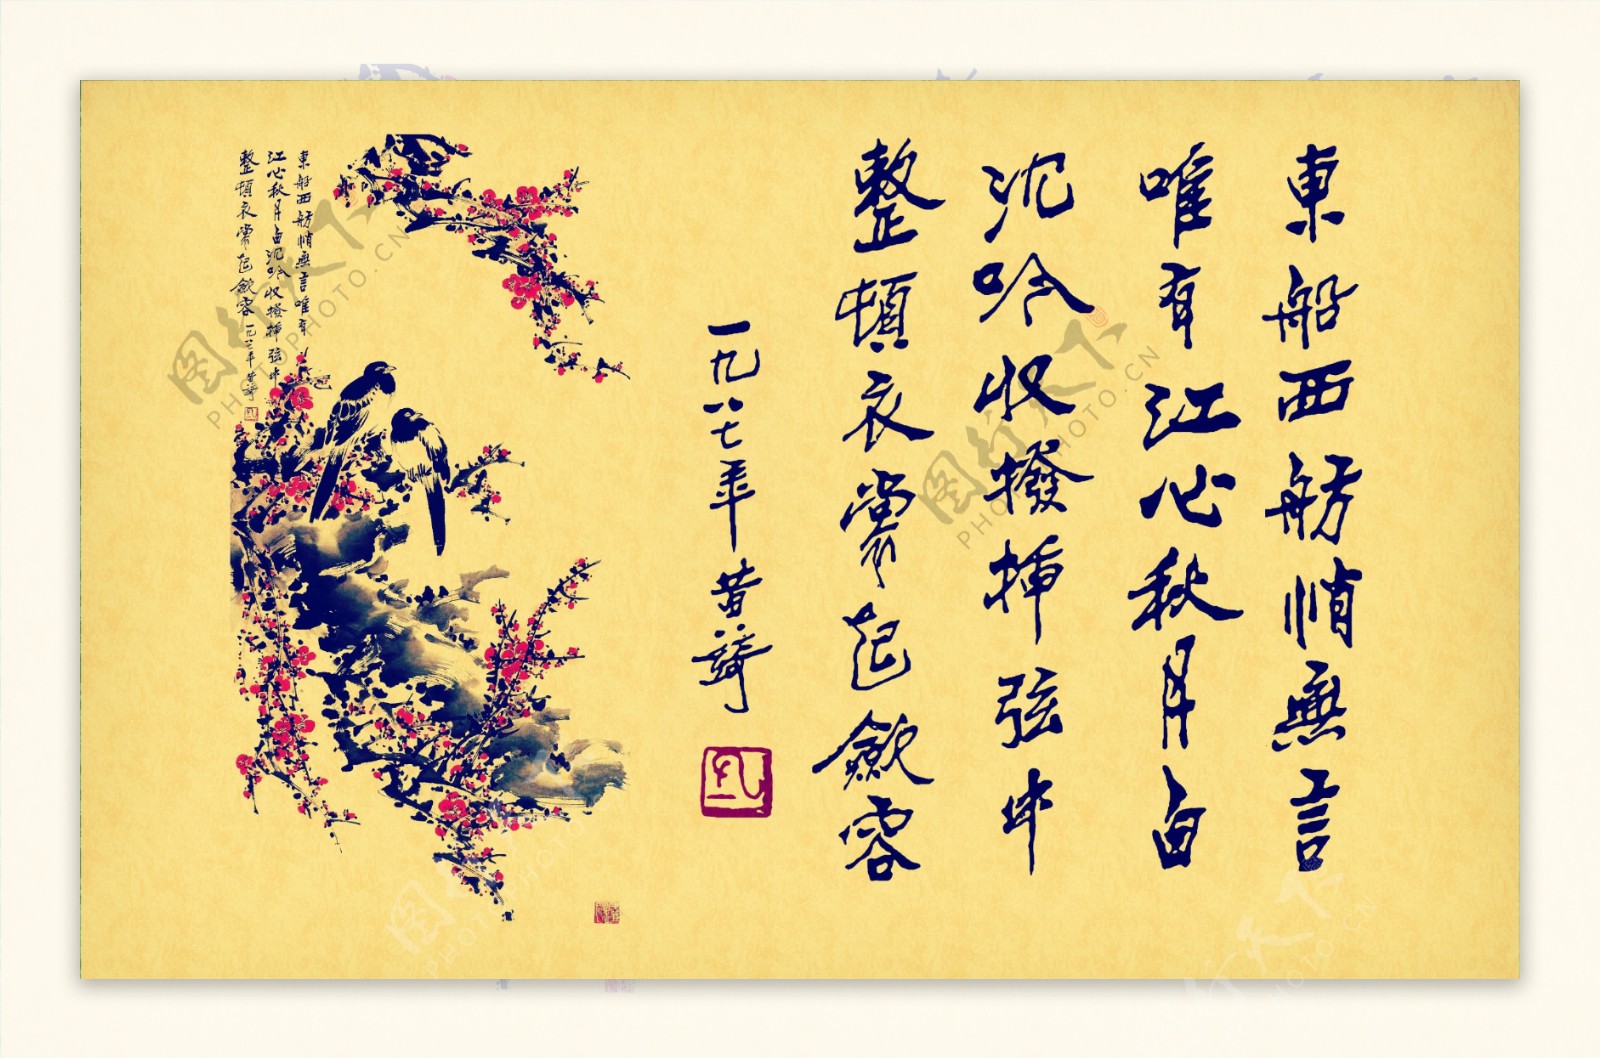 東船西舫悄無言
唯有江心秋月白
沉吟收撥插弦中
整頓衣裳起斂容
一九八七年黄琦
東船西舫悄無言唯有
江心秋月白沉吟收撥插弦中
整頓衣裳起斂容一九八七年黄琦
图行天下
PHOTOPHOTO.CN
图行天下
PHOTOPHOTO.CN